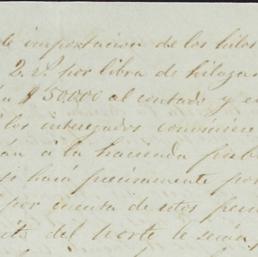 te importacion de los hilos
2. rs. por libra de hilaza
án $50.000 al contado y e
los interesados convinie
án á la hacienda pub
si hará precisamente po
por cuenta de estos
ito del norte le serán